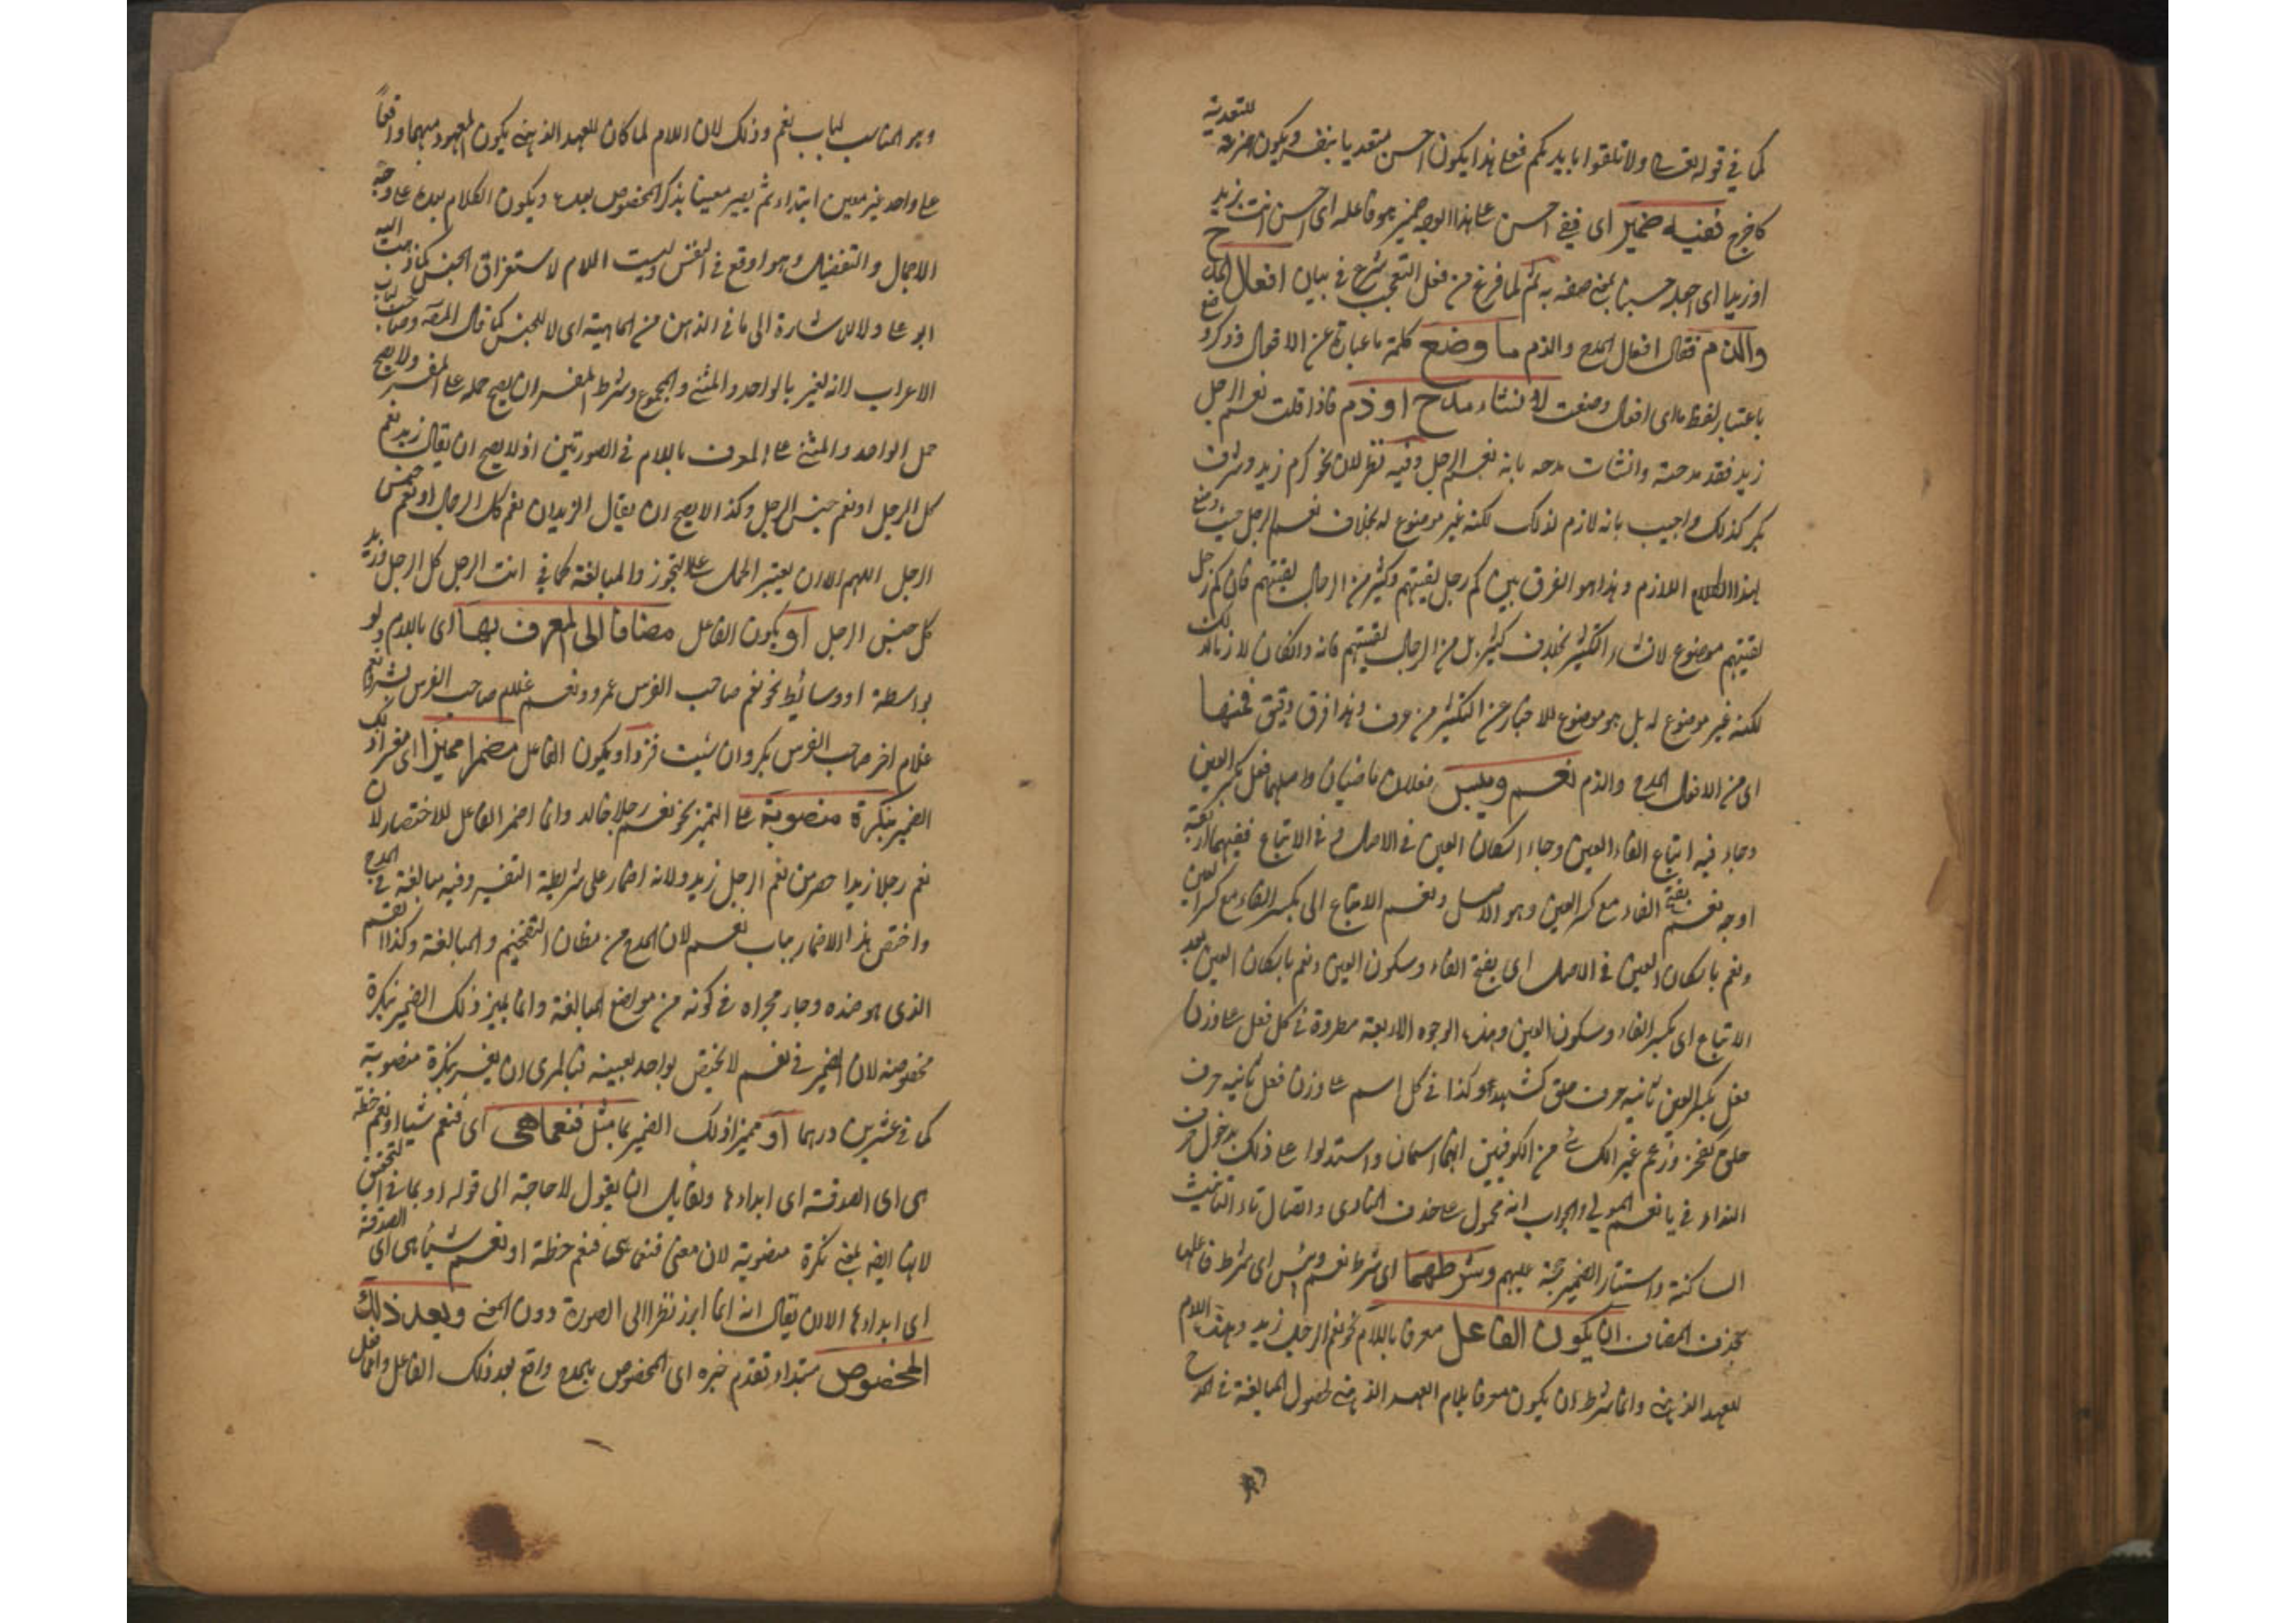 كما في قوله تعالى ولا تلقوا بايديكم فعلى هذا يكون احسن متعديا بنفسه ويكون همزته للتعدية
كاخرج ففيه ضمير اى ففى احسن على هذا الوجه ضمير هو فاعله اى احسن انت بزيد
او زيدا اى اجعله حسنا بمعنى صفه به ثم لما فرغ من فعل التعجب شرع في بيان افعال المدح
والذم فقال افعال المدح والذم ما وضع كلمة ما عبارة عن الافعال وذكر وضع
باعتبار لفظ ما اى افعال وضعت لانشاء مدح او ذم فاذا قلت نعم الرجل
زيد فقد مدحته وانشات مدحه بانه نعم الرجل وفيه نظر لان نحو كرم زيد وشرف
بكر كذلك واجيب بانه لازم لذلك لكنه غير موضوع له بخلاف نعم الرجل حيث وضع
لهذا اللازم وهذا هو الفرق بين كم رجل لقيتهم وكثير من الرجال لقيتهم فان كم رجل
لقيتهم موضوع لانشاء التكثير بخلاف كثير من الرجال لقيتهم فانه وان كان لازما لذلك
لكنه غير موضوع له بل هو موضوع للاخبار عن التكثير من عرف وهذا فرق دقيق فمنها
اى من الافعال المدح والذم نعم وبئس فعلان ماضيان واصلهما فعل بكسر العين
وجاء فيه اتباع الفاء العين وجاء اسكان العين في الاصل و في الاتباع ففيهما اربعة
اوجه نعم بفتح الفاء مع كسر العين وهو الاصل ونعم الاتباع اى بكسر الفاء مع كسر العين
ونعم باسكان العين في الاصل اى بفتح الفاء وسكون العين ونعم باسكان العين بعد
الاتباع اى بكسر الفاء وسكون العين وهذه الوجوه الاربعة مطردة في كل فعل على وزن
فعل بكسر العين ثانيه حرف حلق كشهد وكذا في كل اسم على وزن فعل ثانيه حرف
حلق كفخذ وزعم غير الكسائي من الكوفيين انهما اسمان واستدلوا على ذلك بدخول حرف
النداء في يا نعم المولى والجواب انه محمول على حذف المنادى واتصال تاء التانيث
الساكنة واستتار الضمير حجة عليهم وشرطهما اى شرط نعم وبئس اى شرط فاعلهما
بحذف المضاف ان يكون الفاعل معرفا باللام نحو نعم الرجل زيد وهذه اللام
للعهد الذهني وانما شرط ان يكون معرفا بلام العهد الذهني لحصول المبالغة في المدح
وهو المناسب لباب نعم وذلك لان اللام لما كان للعهد الذهني يكون المعهود مبهما واقعاً
على واحد غير معين ابتداء ثم يصير معينا بذكر المخصوص بعده ويكون الكلام بعده على وجه
الاجمال والتفصيل وهو اوقع في النفس وليست اللام لاستغراق الجنس كما ذهب اليه
ابو على ولا للاشارة الى ما في الذهن من الماهية اى لا للجنس كما قال المصه وصاحب لباب
الاعراب لانه يفسر بالواحد والمثنى والمجموع وشرط المفسر ان يصح حمله على المفسر ولا يصح
حمل الواحد والمثنى على المعرف باللام في الصورتين اذ لا يصح ان يقال زيد نعم
كل الرجل او نعم جنس الرجل وكذا لا يصح ان يقال الزيدان نعم كل الرجال او نعم جنس
الرجل اللهم الا ان يعتبر الحمل على التجوز والمبالغة كما في انت الرجل كل الرجل وزيد
كل جنس الرجل او يكون الفاعل مضافا الى المعرف بها اى باللام ولو
بواسطة او وسائط نحو نعم صاحب الفرس عمرو ونعم غلام صاحب الفرس بشر ونعم
غلام اخر صاحب الفرس بكر وان شئت فزد او يكون الفاعل مضمرا مميزا اى مفسرا ذلك
الضمير بنكرة منصوبة على التميز نحو نعم رجلا خالد وانما اضمر الفاعل للاختصار لان
نعم رجلا زيدا اخصر من نعم الرجل زيد ولانه اضمار على شريطة التفسير وفيه مبالغة في المدح
واختص هذا الاضمار بباب نعم لان المدح من مظان التفخيم والمبالغة وكذا القسم
الذى هو ضده وجار مجراه في كونه من مواضع المبالغة وانما يميز ذلك الضمير بنكرة
مخصوصه لان الضمير في نعم لا يختص بواحد بعينه فبالحرى ان يفسر بنكرة منصوبة
كما في عشرين درهما او مميزا ذلك الضمير بما مثل فنعما هى اى فنعم شيئا او نعم خصلة
هى اى الصدقة اى ابداءها ولقايل ان يقول لا حاجة الى قوله او بما في التحقيق
لانها ايضه بمعنى نكرة منصوبة لان معنى فنعما هى فنعم خصلة او نعم شيئا هى اى الصدقة
اى ابداءها الا ان يقال انه انما ابرز نظرا الى الصورة دون المعنى وبعد ذلك
المخصوص مبتداء تقدم خبره اى المخصوص بالمدح واقع بعد ذلك الفاعل والفعل